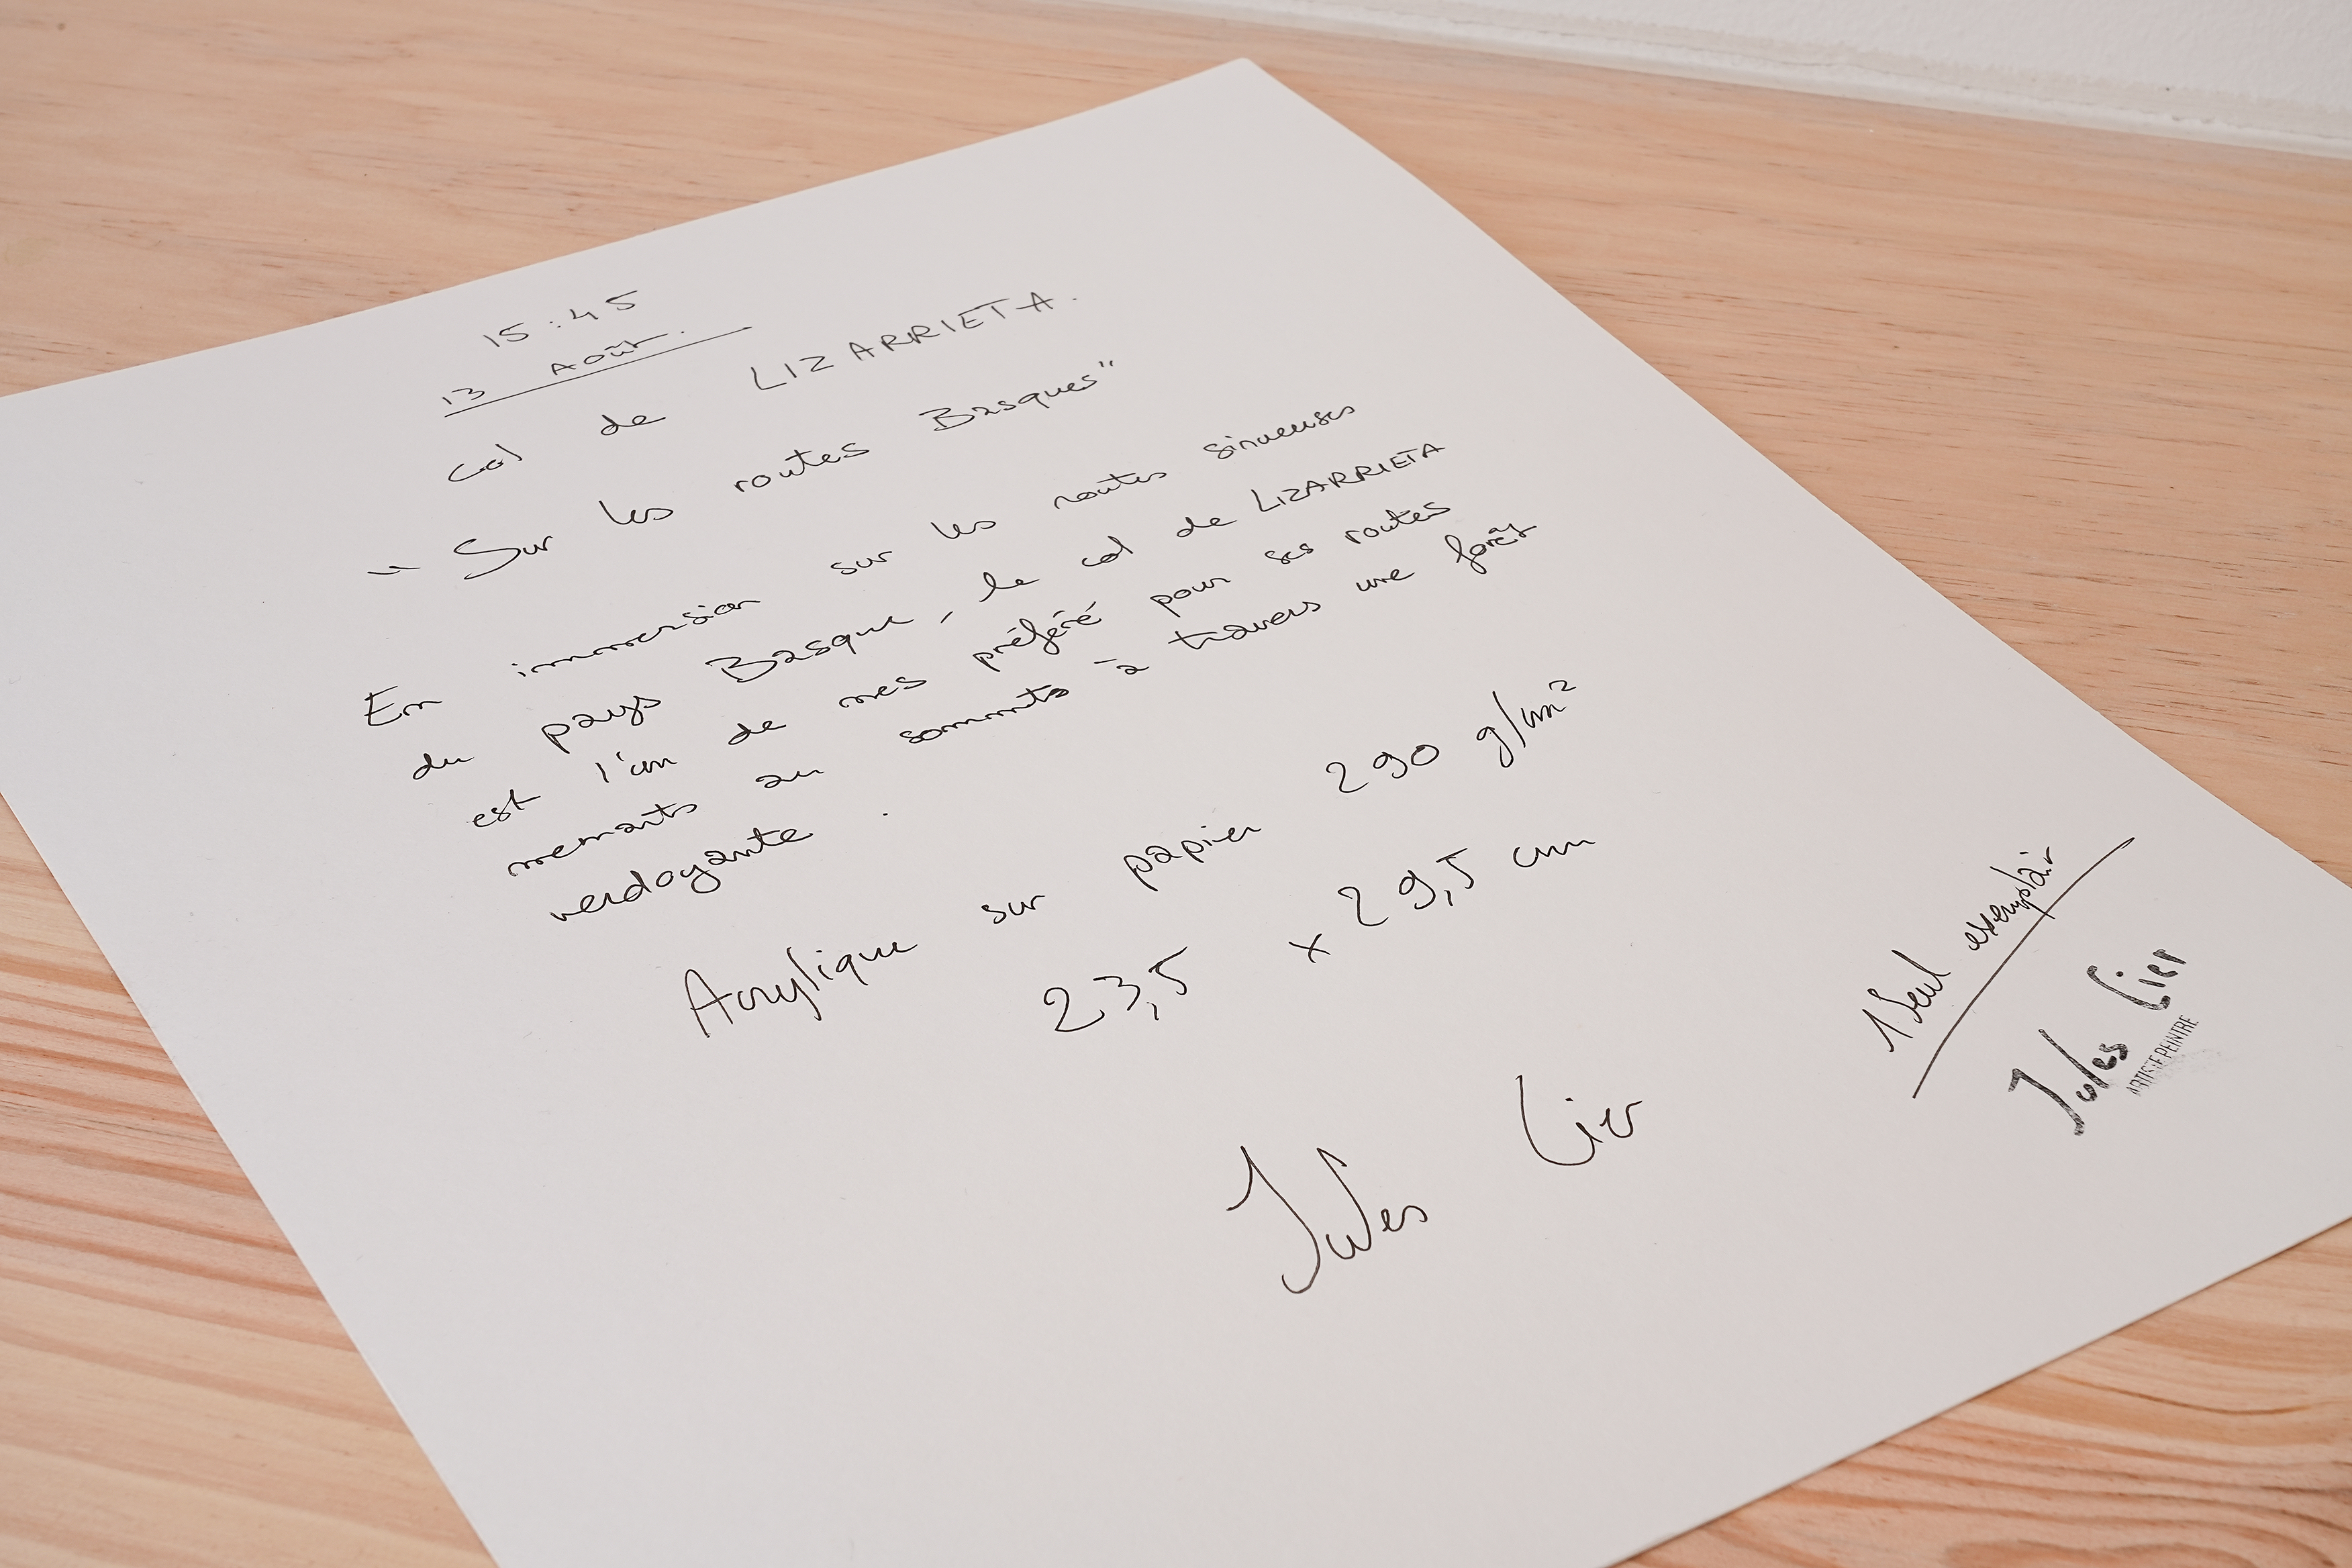 15:45
13 Août.
col de LIZARRIETA.
"Sur les routes Basques"
En immersion sur les routes sinueuses
du pays Basque, le col de LIZARRIETA
est l'un de mes préféré pour ses routes
menants au sommets à travers une forêt
verdoyante.
Acrylique sur papier 290 g/cm²
23,5 x 29,5 cm
Jules Lier
1 Seul exemplair
Jules Lier
ARTISTE PEINTRE